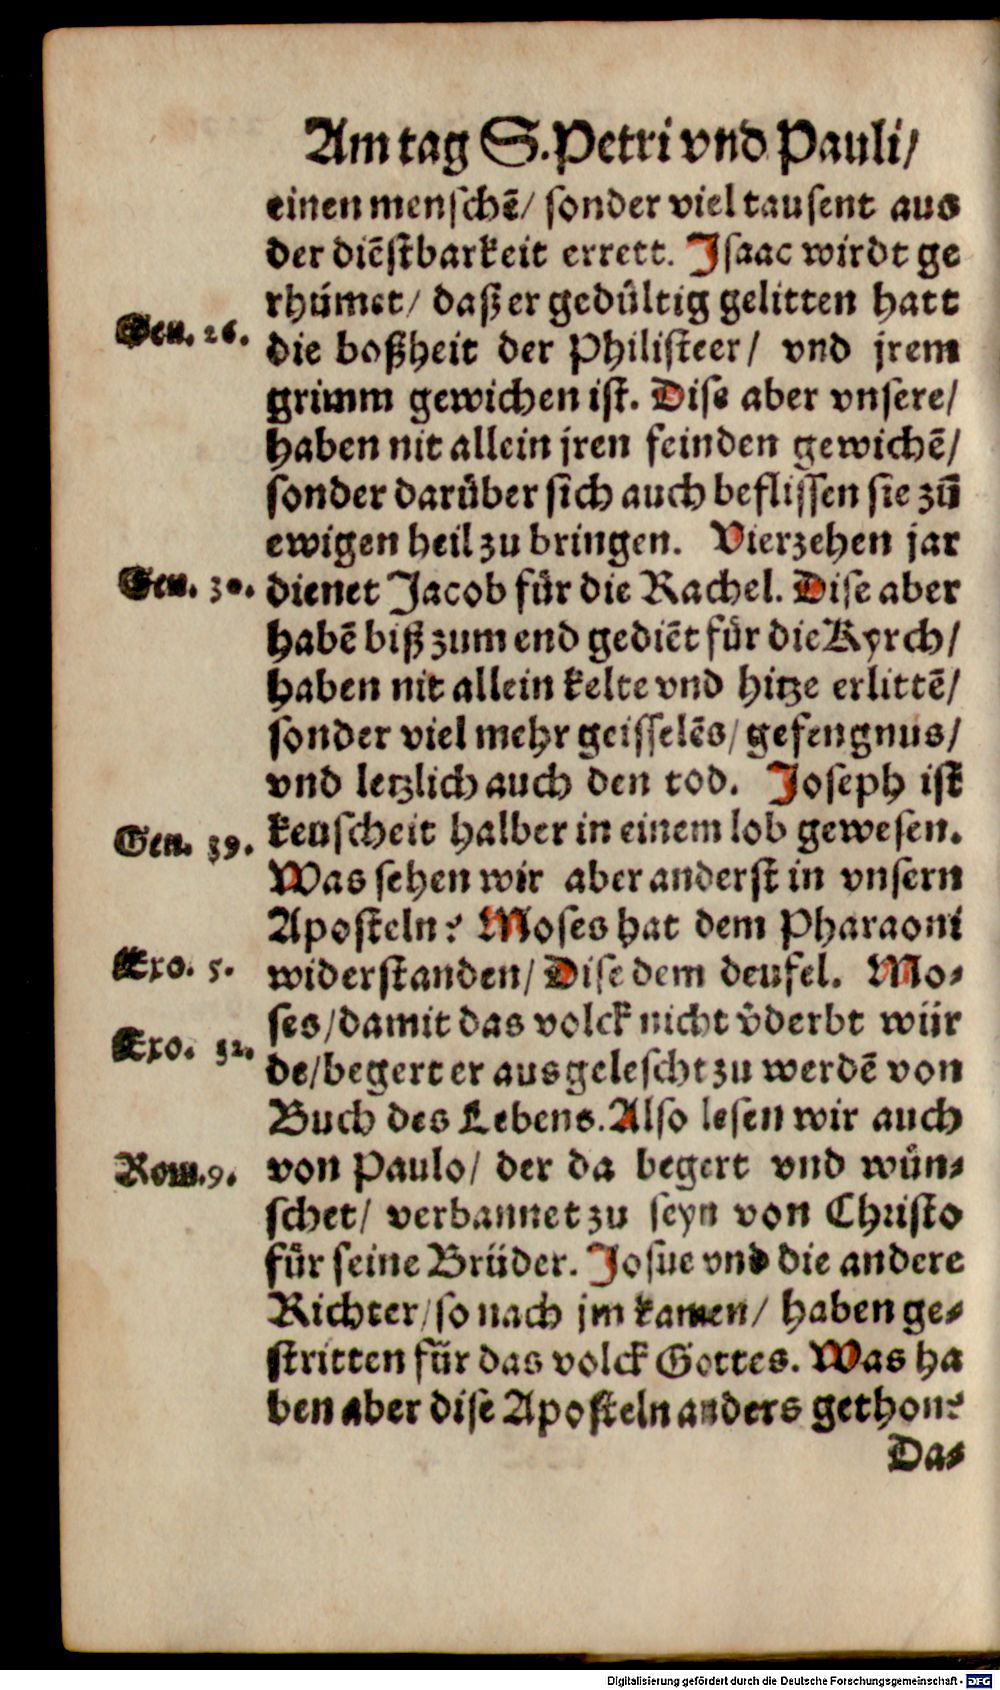 Am tag S. Petri vnd Pauli/
einen menschē/ sonder viel tausent aus
der diēstbarkeit errett. Isaac wirdt ge
rhümet/ daß er gedültig gelitten hatt
Gen. 26.
die boßheit der Philisteer/ vnd jrem
grimm gewichen ist. Dise aber vnsere/
haben nit allein jren feinden gewichē/
sonder darüber sich auch beflissen sie zū
ewigen heil zu bringen. Vierzehen jar
Gen. 30.
dienet Jacob für die Rachel. Dise aber
habē biß zum end gediēt für die Kyrch/
haben nit allein kelte vnd hitze erlittē/
sonder viel mehr geisselēs/ gefengnus/
vnd letzlich auch den tod. Joseph ist
Gen. 39.
keuscheit halber in einem lob gewesen.
Was sehen wir aber anderst in vnsern
Aposteln? Moses hat dem Pharaoni
Exo. 5.
widerstanden/ Dise dem deufel. Mo-
ses/ damit das volck nicht v̄derbt wür
Exo. 32.
de/ begert er ausgelescht zu werdē von
Buch des Lebens. Also lesen wir auch
Rom. 9.
von Paulo/ der da begert vnd wün-
schet/ verbannet zu seyn von Christo
für seine Brüder. Josue vnd die andere
Richter/ so nach jm kamen/ haben ge-
stritten für das volck Gottes. Was ha
ben aber dise Aposteln anders gethon?
Da-
Digitalisierung gefördert durch die Deutsche Forschungsgemeinschaft - DFG